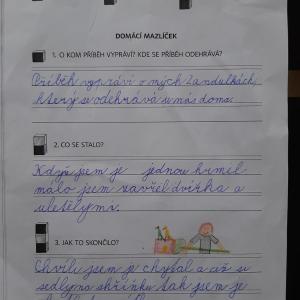 DOMÁCÍ MAZLÍČEK
1. O KOM PŘÍBĚH VYPRÁVÍ? KDE SE PŘÍBĚH ODEHRÁVÁ?
Příběh vypráví o mých 2 andulkách,
který se odehrává u nás doma.
2. CO SE STALO?
Když jsem je jednou krmil
málo jsem zavřel dvířka a
uletěly mi.
3. JAK TO SKONČILO?
Chvíli jsem je chytal a až si
sedly na skřínku tak jsem je